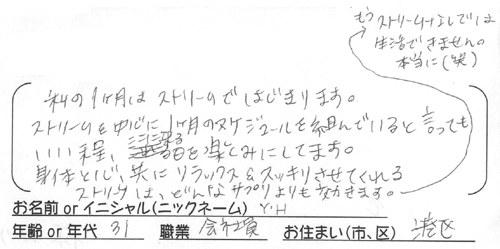 もうストリームナシでは
生活できません。
本当に(笑)
私の1ヶ月はストリームではじまります。
ストリームを中心に1ヶ月のスケジュールを組んでいると言っても
いい程、来る日を楽しみにしてます。
身体と心、共にリラックス&スッキリさせてくれる
ストリームは、どんなサプリよりも効きます。
お名前 or イニシャル(ニックネーム) Y・H
年齢 or 年代 31 職業 会社員 お住まい(市、区) 港区